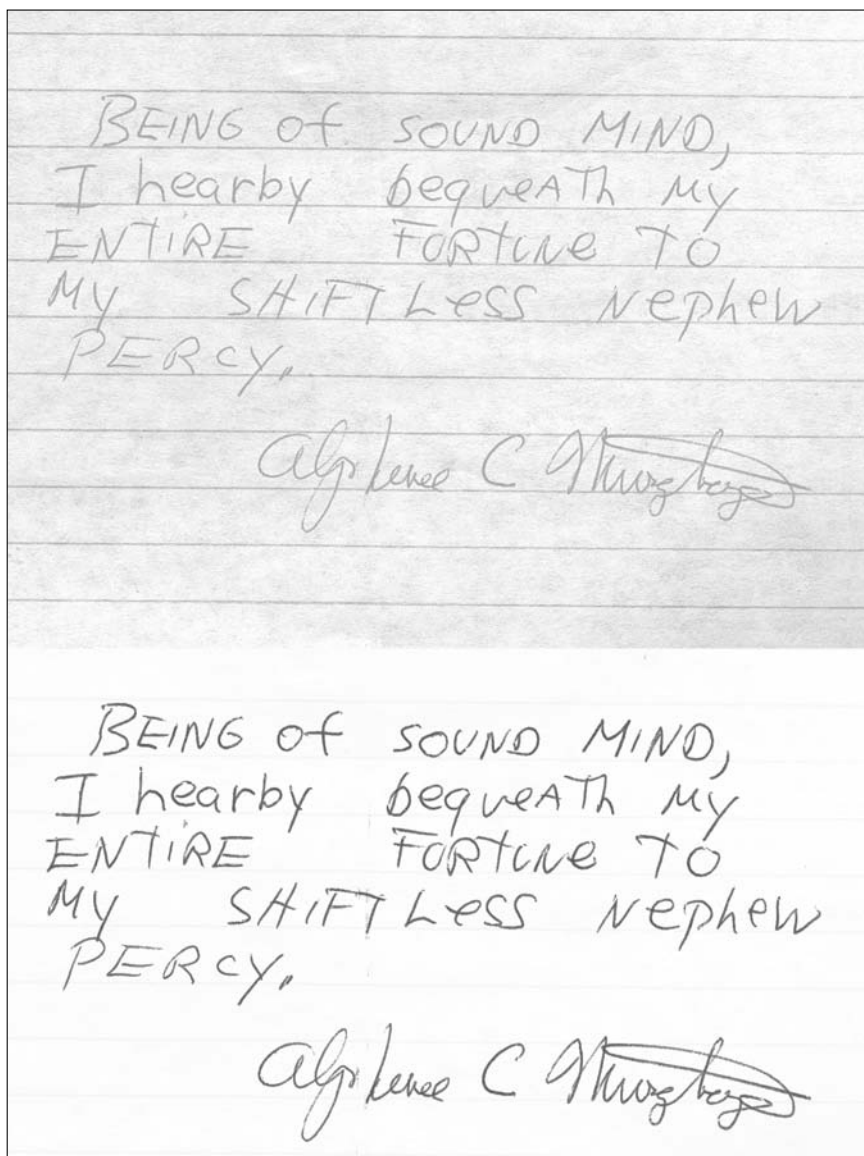 BEING of SOUND MIND,
I hearby bequeATh My
ENTIRE FORTUNE TO
My SHIFTLess Nephew
PERCY.
C
BEING of SOUND MIND,
I hearby bequeATh My
ENTIRE FORTUNE TO
My SHIFTLess Nephew
PERCY.
C